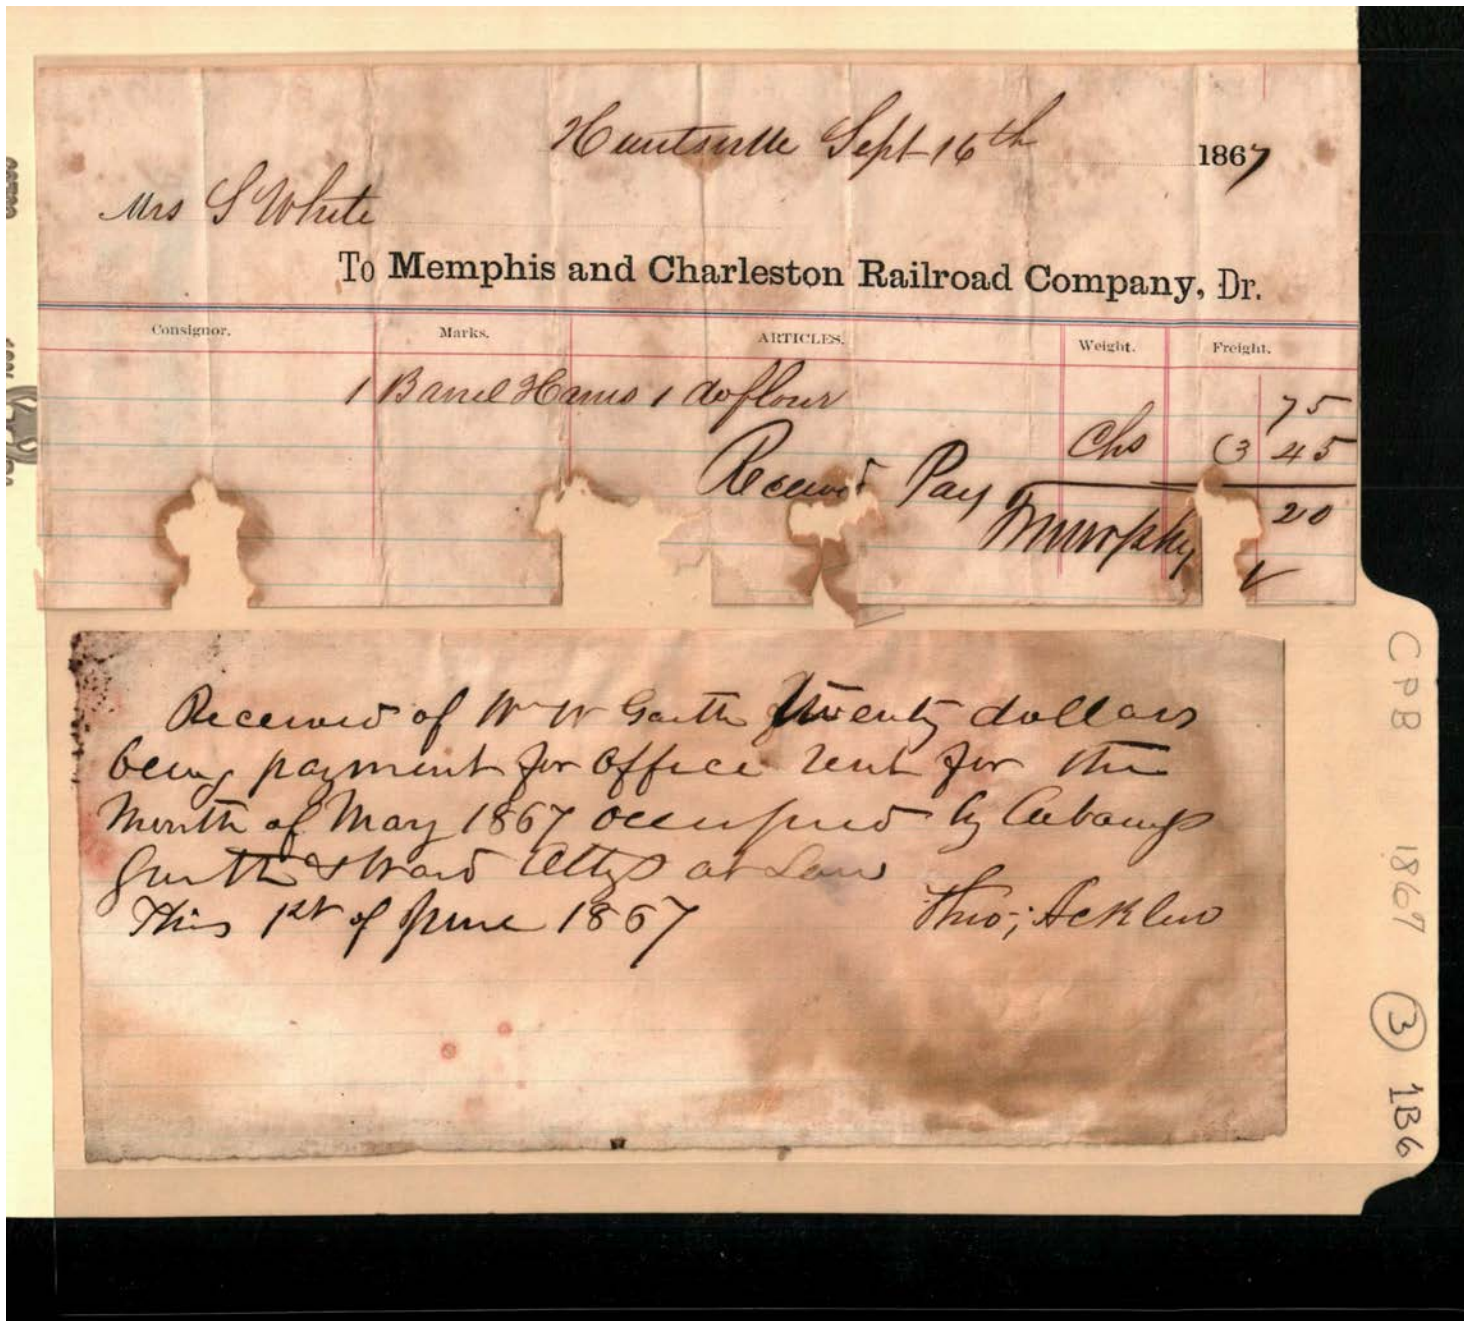 Huntsville Sept 16th 1867
Mrs S White
To Memphis and Charleston Railroad Company, Dr.
Consignor. Marks. ARTICLES. Weight. Freight.
1 Barrel Hams 1 do flour 75
Chs (3 45
Received Pay 20
Murphy
Received of Wm W Garth Twenty dollars
being payment for office rent for the
Month of May 1867 occupied by Cabaniss
Garth & Ward Attys at Law
This 1st of June 1867 Thos; Acklen
CPB 1867 3 1B6